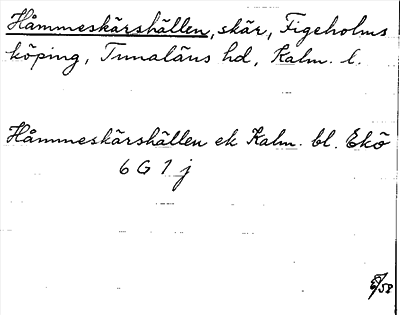 Håmmeskärshällen, skär, Figeholms
köping, Tunaläns hd, Kalm. l.
Håmmeskärshällen ek Kalm. bl. Ekö
6 G 1 j
/58